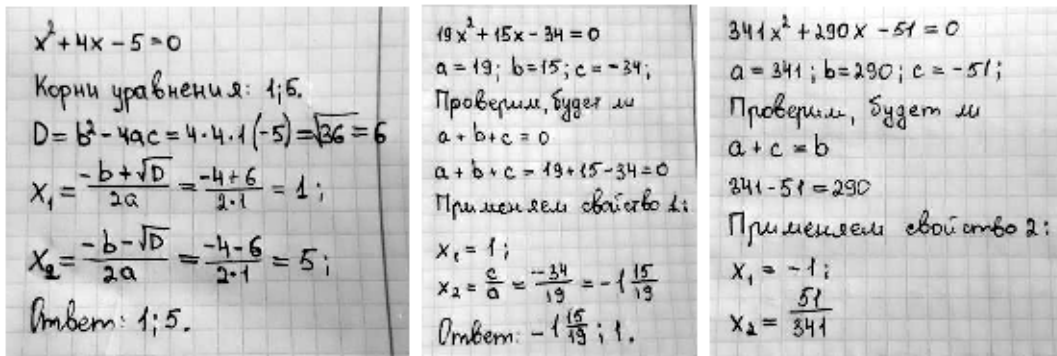 x² + 4x - 5 = 0
Корни уравнения: 1; 5.
D = b² - 4ac = 4·4·1(-5) = √36 = 6
x₁ = (-b + √D)/2a = (-4+6)/2·1 = 1;
x₂ = (-b - √D)/2a = (-4-6)/2·1 = 5;
Ответ: 1; 5.
19x² + 15x - 34 = 0
a = 19; b = 15; c = -34;
Проверим, будет ли
a + b + c = 0
a + b + c = 19 + 15 - 34 = 0
Применяем свойство 1:
x₁ = 1;
x₂ = c/a = -34/19 = -1 15/19
Ответ: -1 15/19; 1.
341x² + 290x - 51 = 0
a = 341; b = 290; c = -51;
Проверим, будет ли
a + c = b
341 - 51 = 290
Применяем свойство 2:
x₁ = -1;
x₂ = 51/341